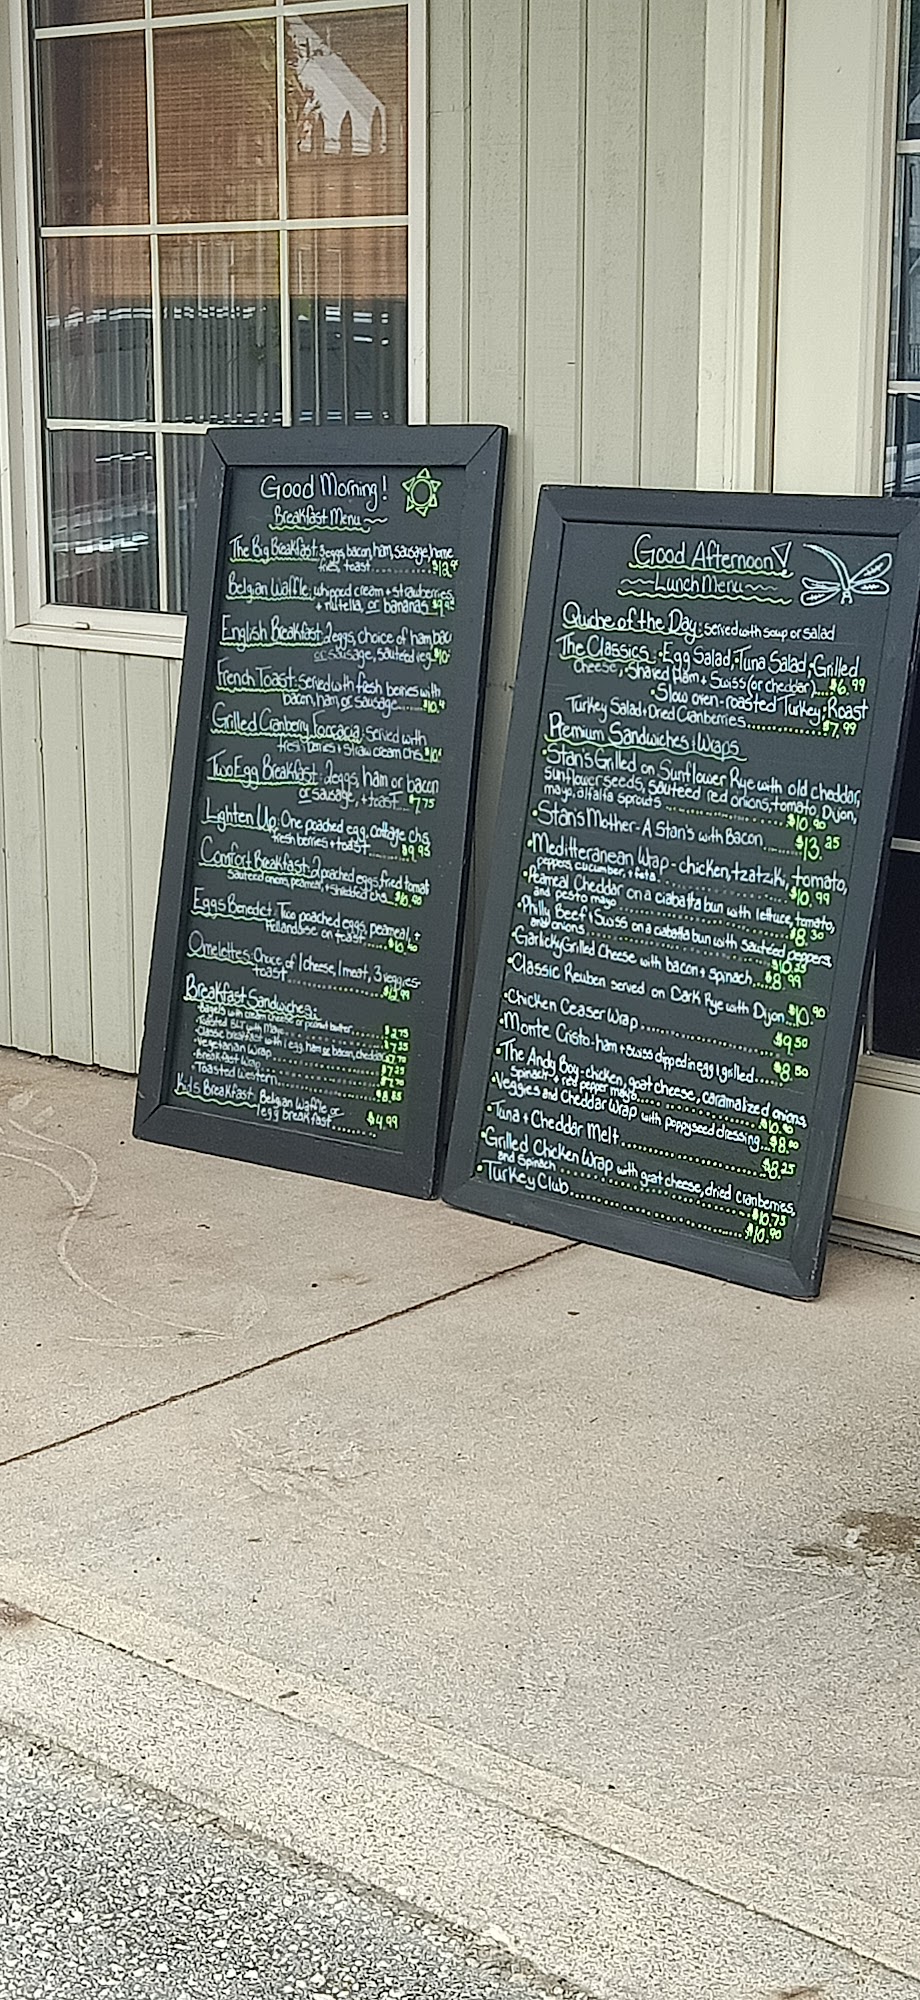 Good Morning!
Breakfast Menu
The Big Breakfast: 3eggs, bacon, ham, sausage, home
fries, toast
Belgian Waffle: whipped cream + strawberries,
+ nutella, or bananas
English Breakfast: 2eggs, choice of ham bac
or sausage, sauteéd veg
French Toast: served with fresh berries with
bacon, ham, or sausage
Grilled Cranberry Foccacia: served with
fresh berries + straw cream chs.
Two Egg Breakfast: 2eggs, ham or bacon
or sausage, + toast... $7.75
Lighten Up: One poached egg, cottage chs
fresh berries + toast...... $9.95
Comfort Breakfast: 2 poached eggs, fried tomato
sauteed onions, peameal, + shredded chs. $10.90
Eggs Benedict: Two poached eggs, peameal, +
Hollandaise on toast
Omelettes: Choice of 1 cheese, 1 meat, 3 veggies-
toast
Breakfast Sandwiches:
• Bagels with cream cheese or peanut butter
• Toasted BLT with Mayo
• Classic breakfast with 1 egg, ham or bacon, cheddar
• Vegetarian Wrap
• Breakfast Wrap
• Toasted Western
Kids Breakfast: Belgian Waffle or
1 egg breakfast......... $4.99
Good Afternoon
Lunch Menu
Quiche of the Day: served with soup or salad
The Classics: • Egg Salad, • Tuna Salad, • Grilled
Cheese, • Shaved Ham + Swiss (or cheddar)... $6.99
• Slow oven-roasted Turkey, • Roast
Turkey Salad + Dried Cranberries............ $7.99
Premium Sandwiches + Wraps
• Stan's Grilled on Sunflower Rye with old cheddar,
sunflower seeds, sauteed red onions, tomato, Dijon,
mayo, alfalfa sprouts ............ $10.90
• Stan's Mother - A Stan's with Bacon..... $13.25
• Mediterranean Wrap - chicken, tzatziki, tomato,
peppers, cucumber, + feta............ $10.99
• Peameal Cheddar on a ciabatta bun with lettuce, tomato,
and pesto mayo ............ $8.30
• Philly Beef + Swiss on a ciabatta bun with sauteed peppers
and onions ............
• Garlicky Grilled Cheese with bacon + spinach.... $8.99
• Classic Reuben served on Dark Rye with Dijon... $10.90
• Chicken Ceaser Wrap ............ $9.50
• Monte Cristo - ham + swiss dipped in egg + grilled..... $8.50
• The Andy Boy - chicken, goat cheese, caramalized onions
spinach + red pepper mayo............ $10.90
• Veggies and Cheddar Wrap with poppyseed dressing... $8.00
• Tuna + Cheddar Melt ............ $8.25
• Grilled Chicken Wrap with goat cheese, dried cranberries,
and Spinach ............ $10.75
• Turkey Club............ $10.90